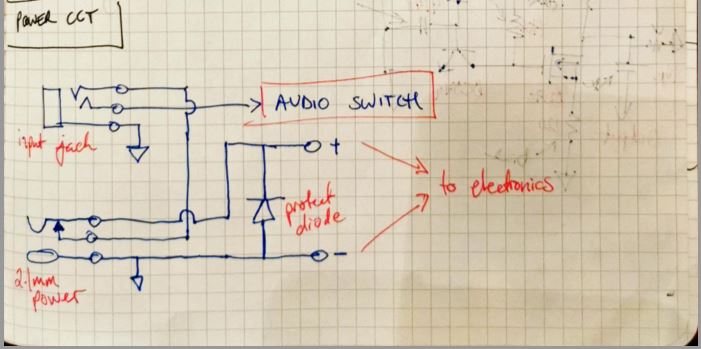 POWER CCT
AUDIO SWITCH
input jack
+
protect
diode
to electronics
-
2.1mm
power